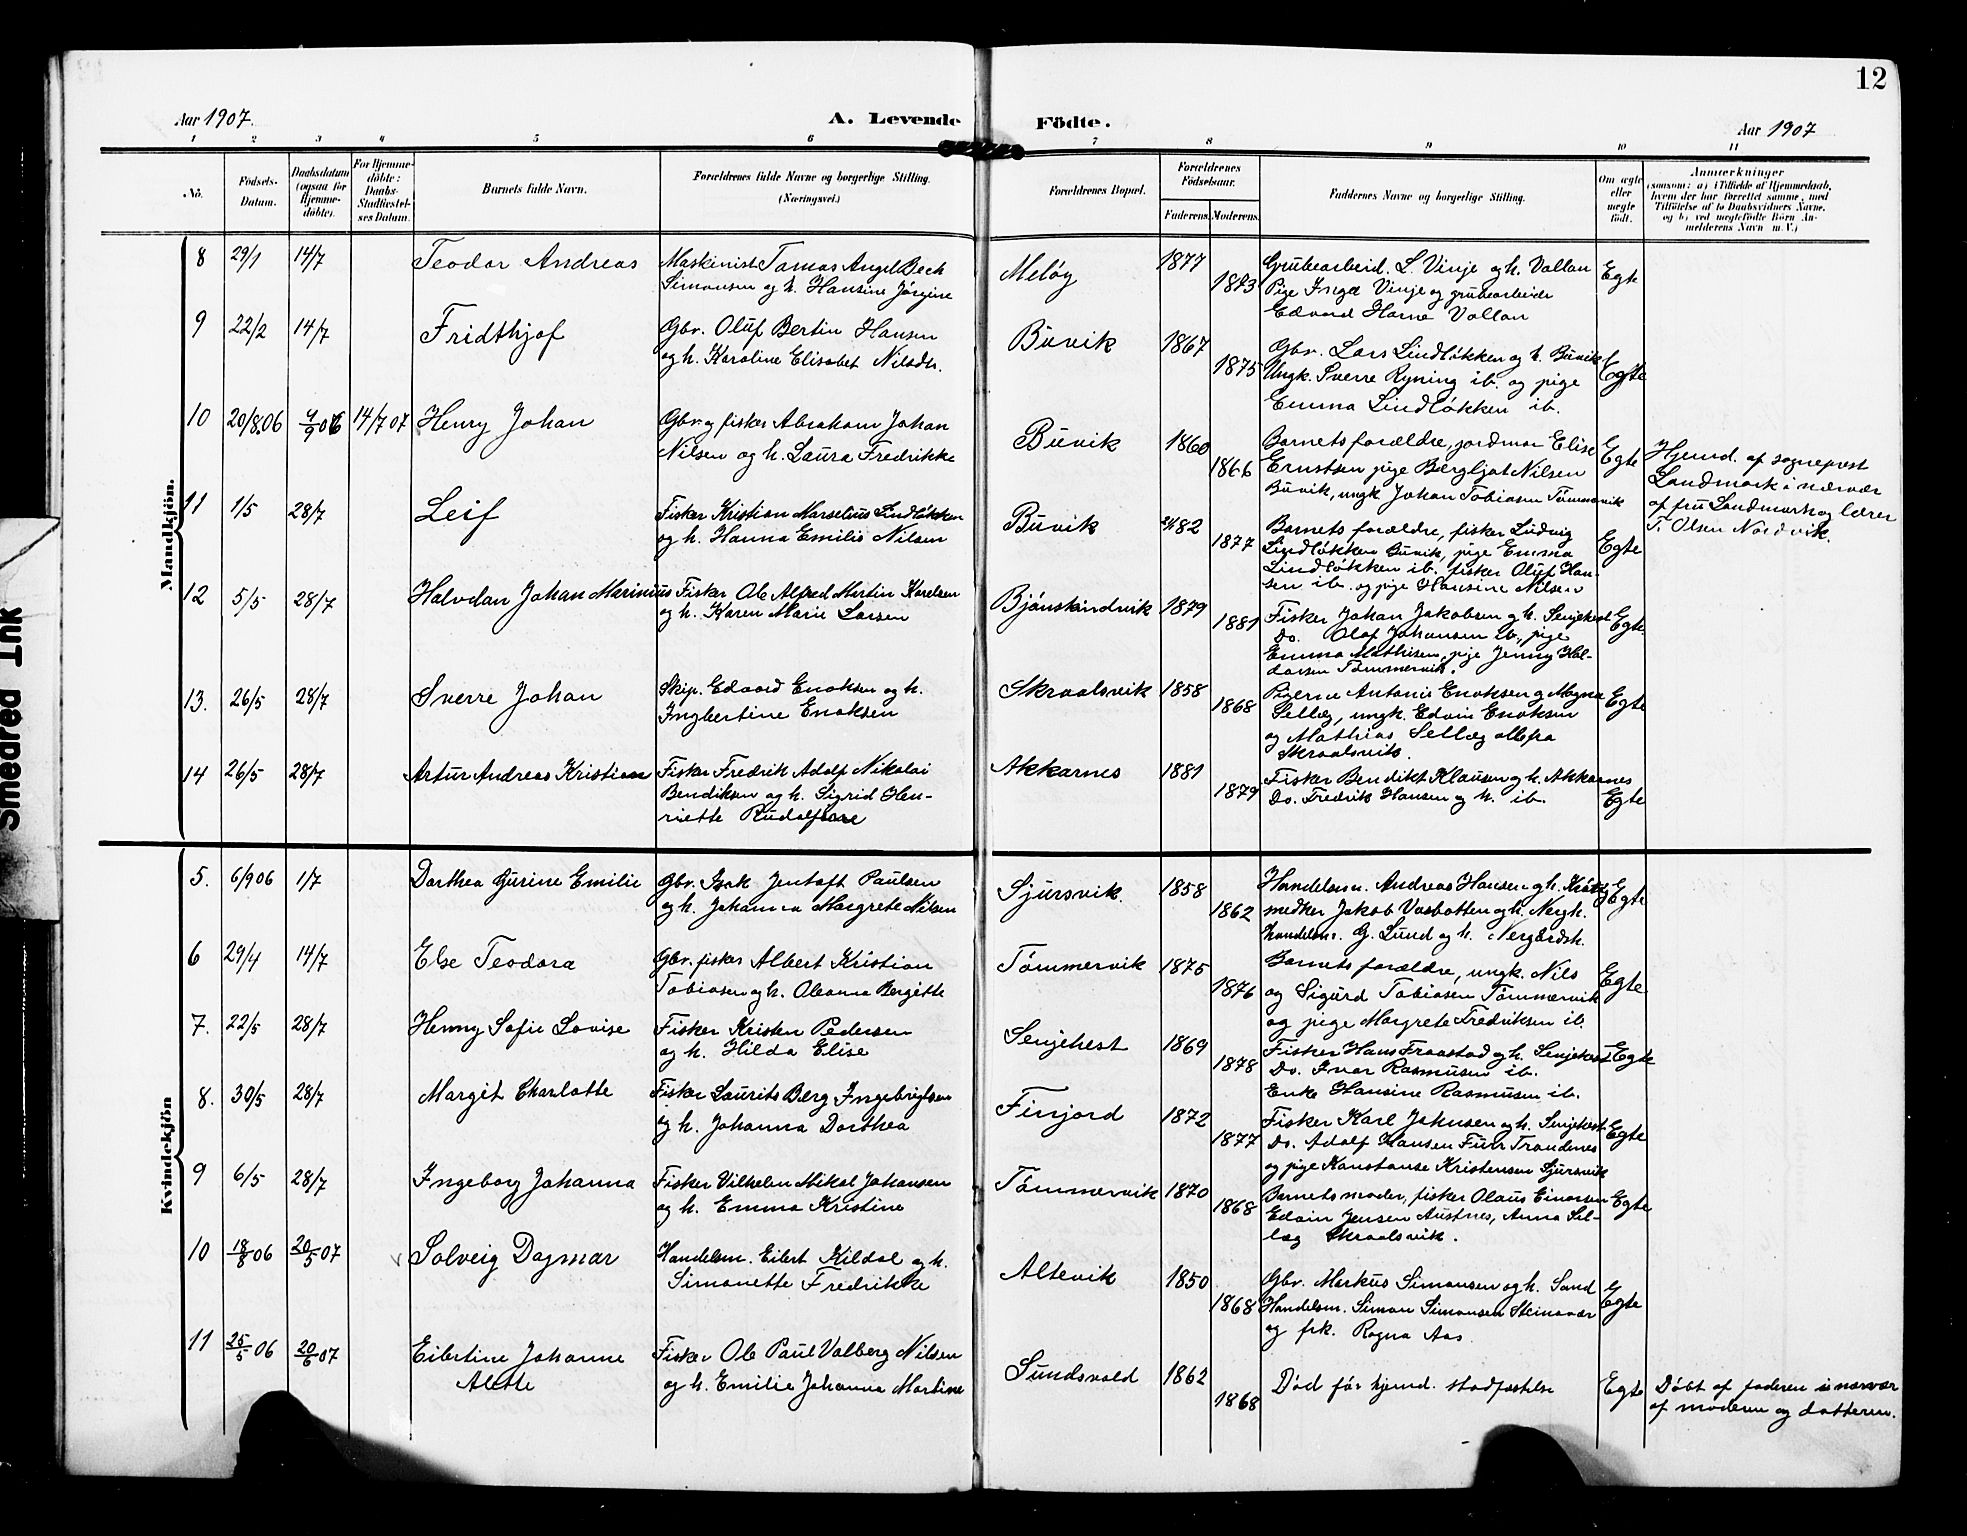 12
Aar 1907.
A. Levende Födte.
Aar 1907
1 2 3 4 5 6 7 8 9 10 11
No.
Födsels-
Datum.
Daabsdatum
(ogsaa for
Hjemme-
döbte).
For Hjemme-
döbte:
Daabs-
Stadfæstel-
ses Datum.
Barnets fulde Navn.
Forældrenes fulde Navne og borgerlige Stilling.
(Næringsvei.)
Forældrenes Bopæl.
Forældrenes
Födselsaar.
Faderens. Moderens.
Faddernes Navne og borgerlige Stilling.
Om ægte
eller
uægte
födt.
Anmærkninger
(saasom: a) i Tilfælde af Hjemmedaab,
hvem der har forrettet samme, med
Tilföielse af to Daabsvidners Navne,
og b) ved uægtefödte Börn An-
melderens Navn m. V.)
Mandkjön.
8 29/1 14/7 Teodor Andreas
Maskinist Tomas Angel Bech
Simonsen og h. Hansine Jørgine
Meløy 1877 1873
Grubearbeid. L. Vinje og h. Vollan
Pige Inga Vinje og grubearbeider
Edvard Horne Vollan
Egte
9 22/2 14/7 Fridthjof
Gbr. Oluf Bertin Hansen
og h. Karoline Elisabet Nilsdtr.
Buvik 1867 1875
Gbr. Lars Lindløkken og h. Buvik
Ungk. Sverre Ryning ib. og pige
Emma Lindløkken ib.
Egte
10 20/8.06 4/9 06 14/7 07 Henry Johan
Gbr. og fisker Abraham Johan
Nilsen og h. Laura Fredrikke
Buvik 1860 1866
Barnets forældre, jordmor Elise
Ernstsen pige Bergljot Nilsen
Buvik, ungk Johan Tobiasen Tømmervik
Egte
Hjemd. af sogneprest
Landmark i nærvær
af fru Landmark og lærer
T. Olsen Nordvik.
11 1/5 28/7 Leif
Fisker Kristian Marselius Lindløkken
og h. Hanna Emilie Nilsen
Buvik 82 1877
Barnets forældre, fisker Ludvig
Lindløkken Buvik, pige Emma
Lindløkken ib. fisker Oluf Han-
sen ib. og pige Hansine Nilsen
Egte
12 5/5 28/7 Halvdan Johan Marinius
Fisker Ole Alfred Martin Karelsen
og h. Karen Marie Larsen
Bjønskindvik 1879 1881
Fisker Johan Jakobsen og h. Senjehest
Do. Olaf Johansen ib., pige
Emma Mathisen, pige Jenny Hal-
dorsen Tømmervik.
Egte
13. 26/5 28/7 Sverre Johan
Skip. Edvard Enoksen og h.
Ingbertine Enoksen
Skroalsvik 1858 1868
Pigerne Antonie Enoksen og Magna
Selleg, ungk. Edvin Enoksen
og Mathias Selleg alle fra
Skroalsvik.
Egte
14 26/5 28/7 Artur Andreas Kristian
Fisker Fredrik Adolf Nikolai
Bendiksen og h. Sigrid Hen-
riette Rudolfsen
Akkarnes 1881 1879
Fisker Bendikt Klausen og h. Akkarnes
Do. Fredrik Hansen og h. ib.
Egte
Kvindekjön
5. 6/9 06 1/7 Dorthea Gjurine Emilie
Gbr. Isak Jentoft Paulsen
og h. Johanna Margrete Nilsen
Sjursvik. 1858 1862
Handelsm. Andreas Hansen og h.
Jakob Vasbotten og h.
Handelsm. G. Lund og h.
Egte
6 29/4 14/7 Else Teodora
Gbr. fisker Albert Kristian
Tobiasen og h. Oleana Bergitte
Tømmervik 1875 1876
Barnets forældre, ungk. Nils
og Sigurd Tobiasen Tømmervik
og pige Margrete Fredriksen ib.
Egte
7. 22/5 28/7 Henny Sofie Lovise
Fisker Kristen Pedersen
og h. Hilda Elise
Senjehest 1869 1878
Fisker Hans Fraastad og h. Senjehest
Do. Ivar Rasmusen ib.
Enke Hansine Rasmusen ib.
Egte
8. 30/5 28/7 Margit Charlotte
Fisker Laurits Berg Ingebrigtsen
og h. Johanna Dorthea
Finjord 1872 1877
Fisker Karl Johnsen og h. Senjehest.
Do. Adolf Hansen Furr Trondenes
og pige Konstanse Kristensen Sjursvik
Egte
9 6/5 28/7 Ingeborg Johanna
Fisker Vilhelm Mikal Johansen
og h. Emma Kristine
Tømmervik 1870 1868
Barnets moder, fisker Olaus Einarsen
Edvin Jensen Austnes, Anna Sel-
læg Skroalsvik.
Egte
10 18/8 06 20/5 07 Solveig Dagmar
Handelsm. Eilert Kildal og h.
Simonette Fredrikke
Altevik 1850 1868
Gbr. Markus Simonsen og h. Sand
Handelsm. Simon Simonsen Steinavær
og frk. Ragna Aas.
Egte
11 25/5 06 20/6 07 Eilertine Johanne
Alette
Fisker Ole Paul Valberg Nilsen
og h. Emilie Johanna Martine
Sundsvold 1862 1868
Død før hjemd. stadfæstelse
Egte
Døbt af faderen i nærvær
af moderen og datteren.
Smeared Ink